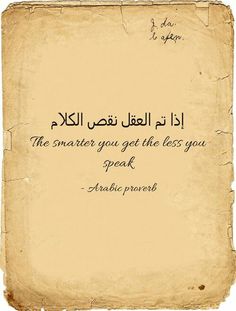 إذا تم العقل نقص الكلام
The smarter you get the less you
speak
- Arabic proverb